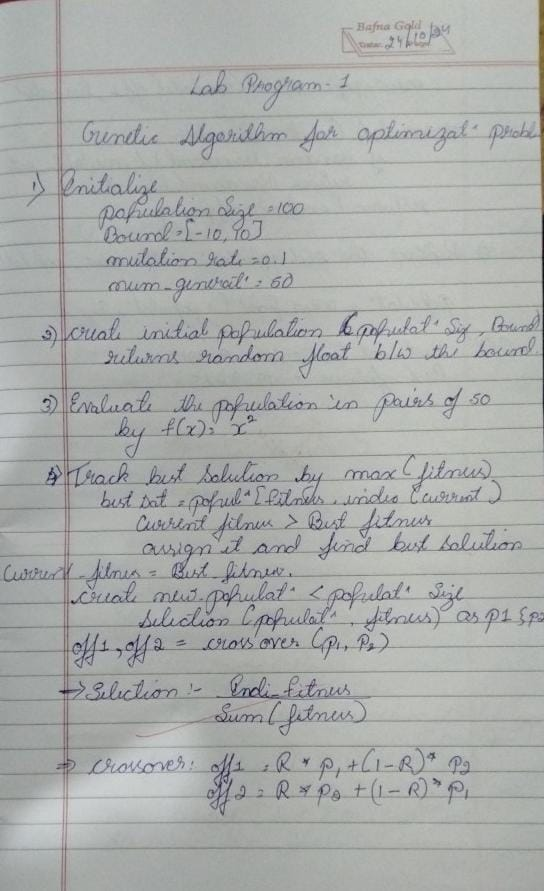 Bafna Gold
Date: 24/10/24
Lab Program-1
Genetic Algorithm for optimizat^n probl
1) Initialize
population Size = 100
Bound = [-10, 10]
mutation rate = 0.1
num_generat^n = 50
2) create initial population (populat^n Siz, Bound
returns random float b/w the bound.
3) Evaluate the population in pairs of 50
by f(x) = x²
4) Track best solution by max(fitness)
best sol = popul^n [fitness. index (current)
Current fitness > Best fitness
assign it and find best solution
Current_fitness = Best_fitness.
create new_populat^n < populat^n Size
Selection (populat^n, fitness) as p1 & p2
off1, off2 = cross over (p1, p2)
→ Selection :- Indi_fitness
Sum(fitness)
⇒ crossover: off1 = R * p1 + (1-R) * p2
off2 = R * p2 + (1-R) * p1